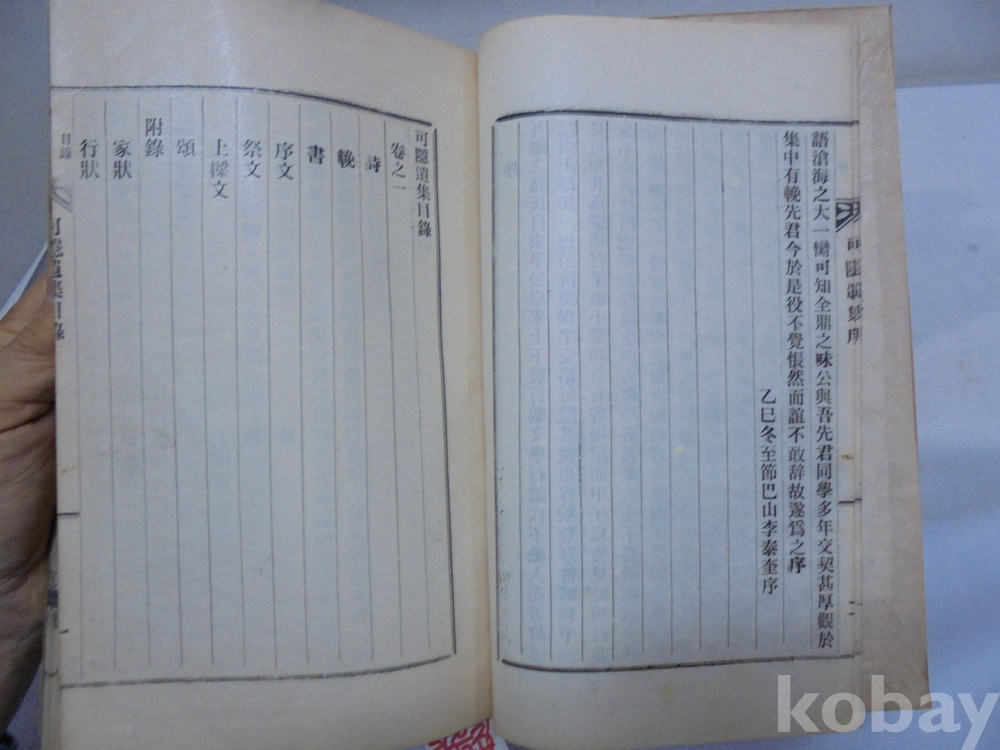 語滄海之大一臠可知全鼎之味公與吾先君同學多年交契甚厚觀於
集中有輓先君今於是役不覺悵然而誼不敢辞故遂爲之序
乙巳冬至節巴山李泰奎序
可隱遺集序
二
可隱遺集目錄
卷之一
詩
輓
書
序文
祭文
上樑文
頌
附錄
家狀
行狀
目錄
可隱遺集目錄
一
kobay